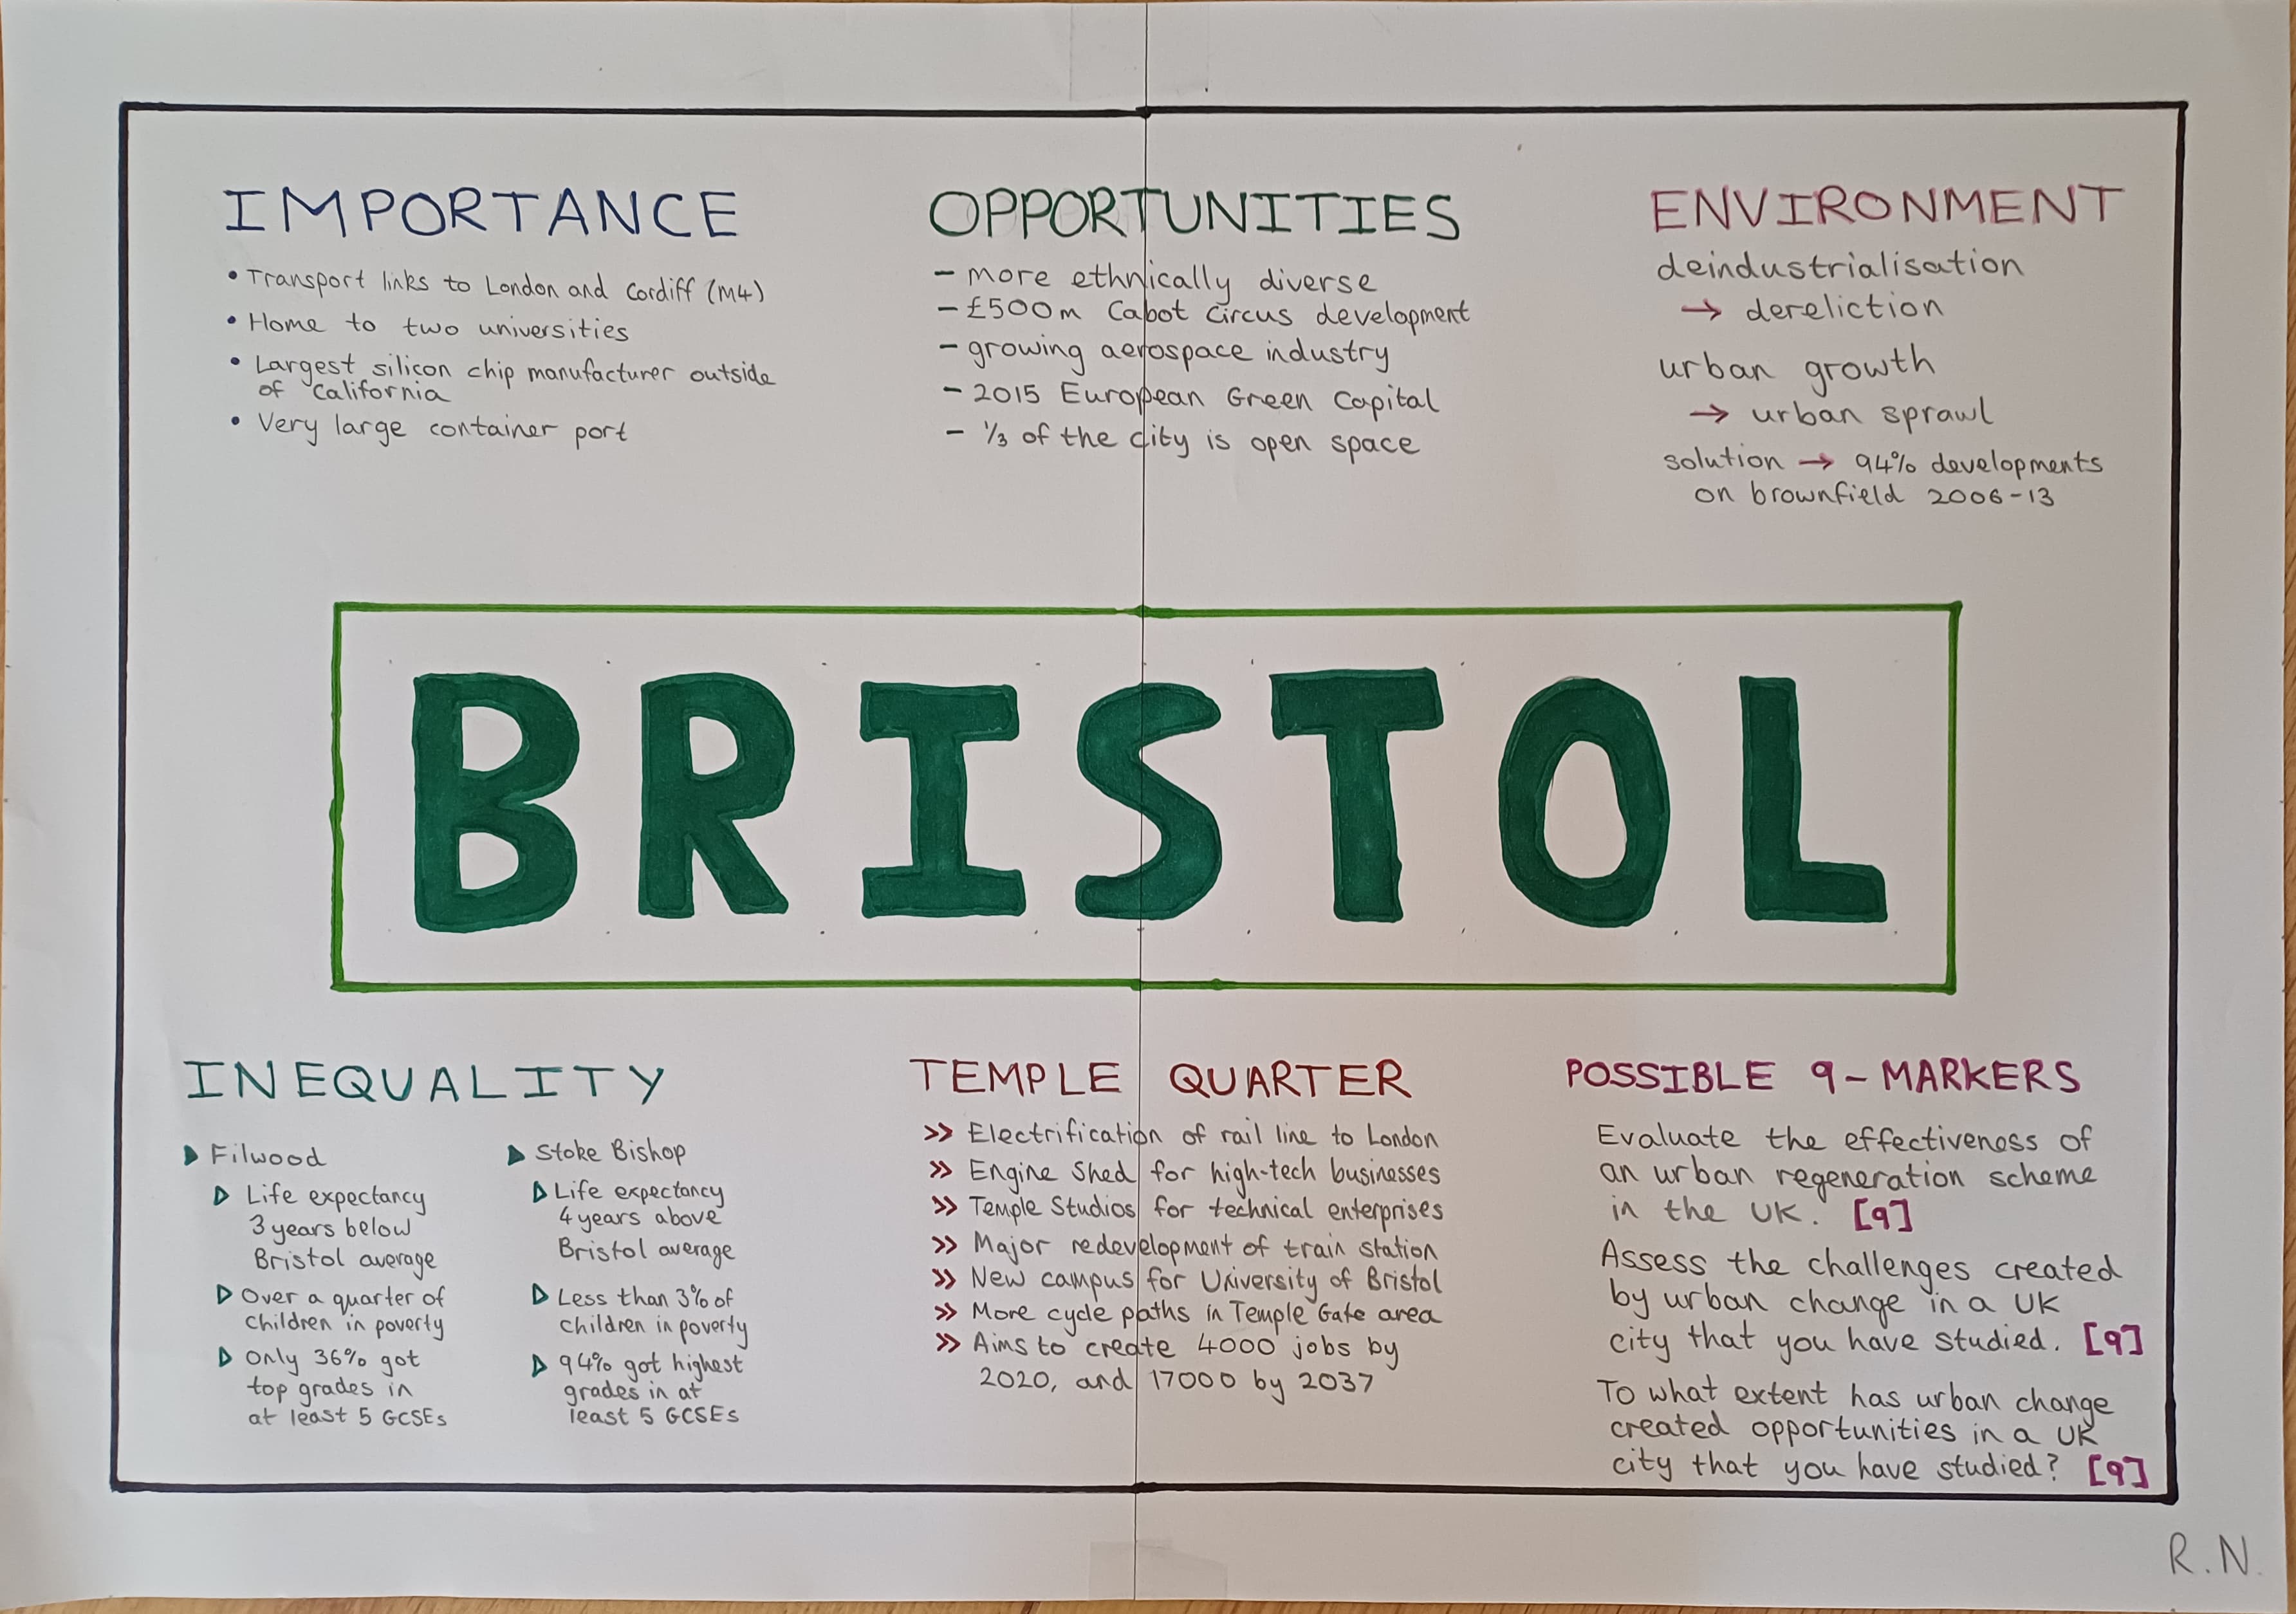 IMPORTANCE
• Transport links to London and Cardiff (M4)
• Home to two universities
• Largest silicon chip manufacturer outside
of California
• Very large container port
OPPORTUNITIES
- more ethnically diverse
- £500m Cabot Circus development
- growing aerospace industry
- 2015 European Green Capital
- 1/3 of the city is open space
ENVIRONMENT
deindustrialisation
→ dereliction
urban growth
→ urban sprawl
solution → 94% developments
on brownfield 2006-13
BRISTOL
INEQUALITY
Filwood
Life expectancy
3 years below
Bristol average
Over a quarter of
children in poverty
Only 36% got
top grades in
at least 5 GCSEs
Stoke Bishop
Life expectancy
4 years above
Bristol average
Less than 3% of
children in poverty
94% got highest
grades in at
least 5 GCSEs
TEMPLE QUARTER
>> Electrification of rail line to London
>> Engine Shed for high-tech businesses
>> Temple Studios for technical enterprises
>> Major redevelopment of train station
>> New campus for University of Bristol
>> More cycle paths in Temple Gate area
>> Aims to create 4000 jobs by
2020, and 17000 by 2037
POSSIBLE 9-MARKERS
Evaluate the effectiveness of
an urban regeneration scheme
in the UK. [9]
Assess the challenges created
by urban change in a UK
city that you have studied. [9]
To what extent has urban change
created opportunities in a UK
city that you have studied? [9]
R.N.